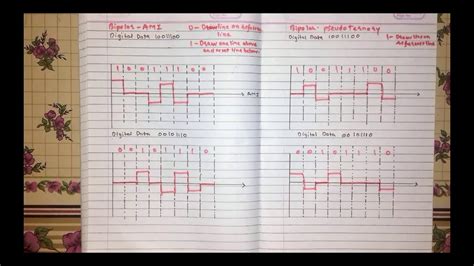 Bipolar - AMI
0 - Draw line on reference line
1 - Draw one line above and next line below.
Digital Data 10011100
1 0 0 1 1 1 0 0
AMI
Digital Data 00101110
0 0 1 0 1 1 1 0
Bipolar - pseudoternary
Digital Data 10011100
1 - Draw line on
1 0 0 1 1 1 0 0
Digital Data 00101110
0 0 1 0 1 1 1 0